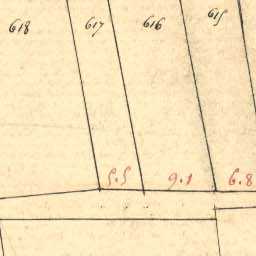 618 617 616 615
5.5 9.1 6.8